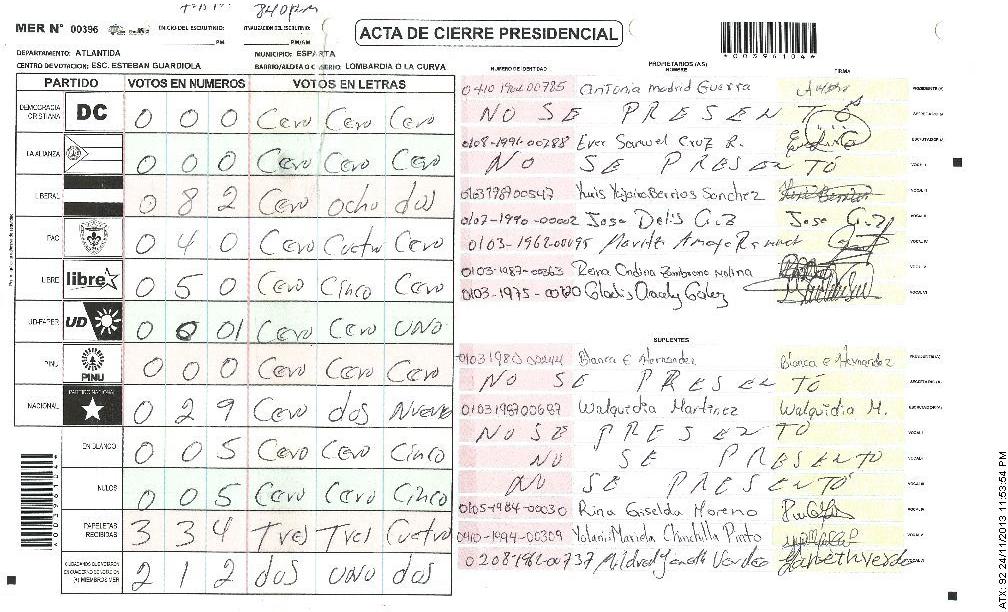 840 pm
MER N° 00396 INICIA DEL ESCRUTINIO: FINALIZACION DEL ESCRUTINIO:
PM PM/AM
ACTA DE CIERRE PRESIDENCIAL
*00396104*
DEPARTAMENTO: ATLANTIDA MUNICIPIO: ESPARTA
CENTRO DE VOTACION: ESC. ESTEBAN GUARDIOLA BARRIO/ALDEA O CASERIO: LOMBARDIA O LA CURVA
PARTIDO VOTOS EN NUMEROS VOTOS EN LETRAS
DEMOCRACIA CRISTIANA DC 0 0 0 Cero Cero Cero
LA ALIANZA 0 0 0 Cero Cero Cero
LIBERAL 0 8 2 Cero ocho dos
PAC 0 4 0 Cero Cuatro Cero
LIBRE libre 0 5 0 Cero Cinco Cero
UD-FAPER UD 0 0 01 Cero Cero UNO
PINU PINU 0 0 0 Cero Cero Cero
NACIONAL PARTIDO NACIONAL 0 2 9 Cero dos Nueve
EN BLANCO 0 0 5 Cero Cero Cinco
NULOS 0 0 5 Cero Cero Cinco
PAPELETAS RECIBIDAS 3 3 4 Tres Tres Cuatro
2 1 2 dos UNO dos
PROPIETARIOS (AS)
NUMERO DE IDENTIDAD NOMBRE FIRMA
antonia madrid Guerra PRESIDENTE(A)
NO SE PRESENTÓ SECRETARIO(A)
0108-1991-00288 Ever Samuel Cruz R. ESCRUTADOR(A)
NO SE PRESENTÓ VOCAL I
0103198700547 Yuris Yojaira Berrios Sanchez VOCAL II
0107-1990-00002 Jose Delis G.Z Jose G.Z VOCAL III
0103-1962-00095 VOCAL IV
0103-1987-00363 Rena Ondina Zambrano Molina VOCAL V
0103-1975-00120 Gladis Aracely Galez VOCAL VI
SUPLENTES
01031980 00244 Blanca E Hernandez Blanca e Hernandez PRESIDENTE(A)
NO SE PRESENTÓ SECRETARIO(A)
0103198700687 Walquidia Martinez Walquidia M. ESCRUTADOR(A)
NO SE PRESENTÓ VOCAL I
NO SE PRESENTO VOCAL II
NO SE PRESENTÓ VOCAL III
0105-1984-00030 Rina Griselda Moreno VOCAL IV
0410-1994-00309 Yolani Mariela Chinchilla Pinto VOCAL V
VOCAL VI
*00396104*
ATX: 92 24/11/2013 11:53:54 PM